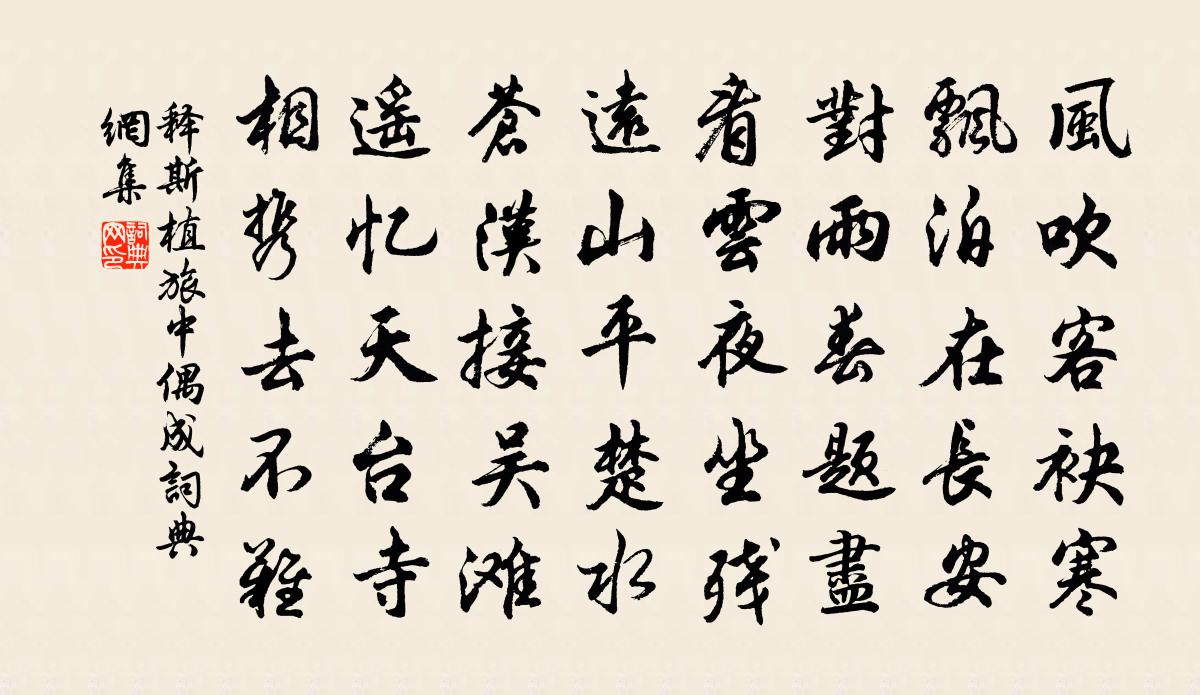 風吹客袂寒
飄泊在長安
對雨春題盡
看雲夜坐残
遠山平楚水
蒼漢接吴滩
遥忆天台寺
相携去不難
释斯植旅中偶成詞典
網集
詞典
网印